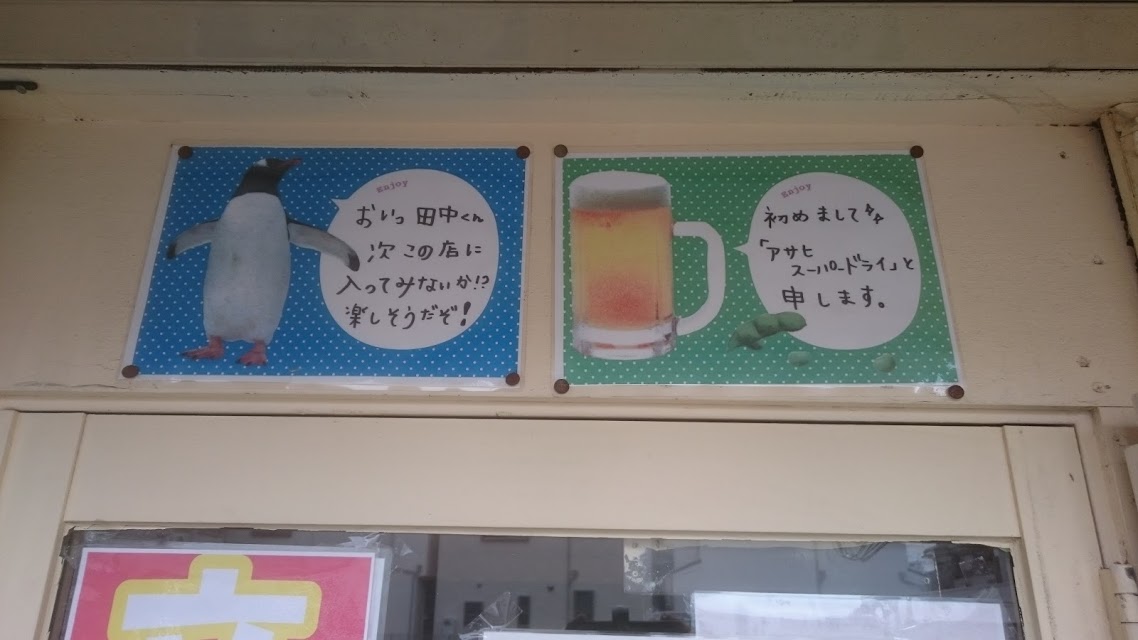 enjoy
おいっ 田中くん
次 この店に
入ってみないか!?
楽しそうだぞ!
enjoy
初めまして
「アサヒ
スーパードライ」と
申します。